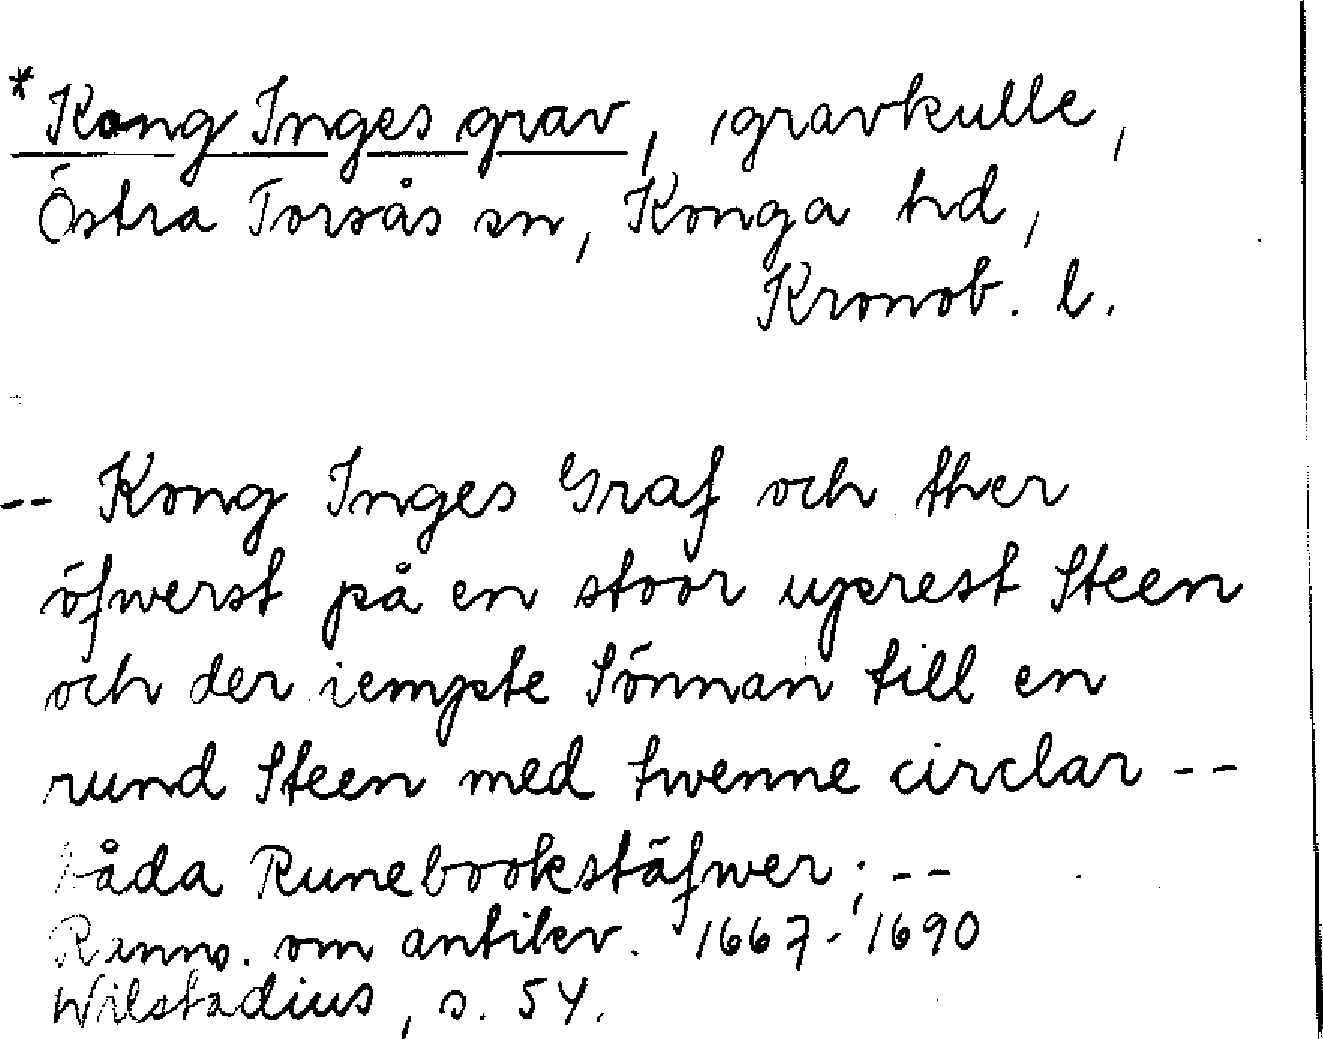 *Kong Inges grav, gravkulle,
Östra Torsås sn, Konga hd,
Kronob. l.
-- Kong Inges Graf och ther
öfwerst på en stoor uprest Steen
och der iempte Sönnan till en
rund Steen med twenne circlar --
båda Runebookstäfwer; --
Ranns. om antikv. 1667-1690
Wilstadius, s. 54.